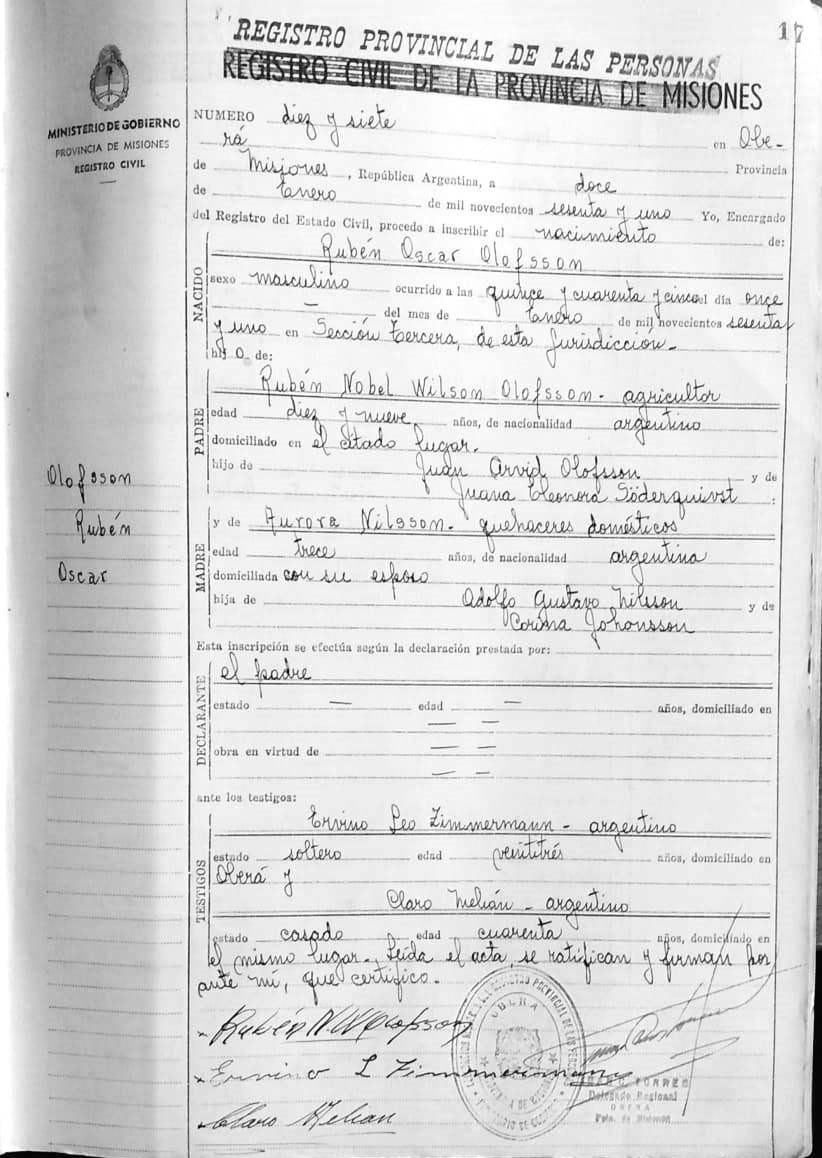 17
REGISTRO PROVINCIAL DE LAS PERSONAS
REGISTRO CIVIL DE LA PROVINCIA DE MISIONES
MINISTERIO DE GOBIERNO
PROVINCIA DE MISIONES
REGISTRO CIVIL
NUMERO diez y siete en Obe-
rá Provincia
de Misiones, República Argentina, a doce
de Enero de mil novecientos sesenta y uno Yo, Encargado
del Registro del Estado Civil, procedo a inscribir el nacimiento de:
NACIDO
Rubén Oscar Olofsson
sexo masculino ocurrido a las quince y cuarenta y cinco el día once
— del mes de Enero de mil novecientos sesenta
y uno en Sección tercera, de esta Jurisdicción-
hij o de:
PADRE
Rubén Nobel Wilson Olofsson- agricultor
edad diez y nueve años, de nacionalidad argentino
domiciliado en el citado lugar.
hijo de Juan Arvid Olofsson y de
Juana Eleonora Söderquivst :
Olofsson
Rubén
Oscar
MADRE
y de Aurora Nilsson- quehaceres domésticos
edad trece años, de nacionalidad argentina
domiciliada con su esposo
hija de Adolfo Gustavo Nilsson y de
Corina Johansson
Esta inscripción se efectúa según la declaración prestada por:
DECLARANTE
el padre
estado — edad — años, domiciliado en
— —
obra en virtud de — —
— —
ante los testigos:
TESTIGOS
Ervino Leo Zimmermann- argentino
estado soltero edad veintitrés años, domiciliado en
Oberá y
Claro Melián- argentino
estado casado edad cuarenta años, domiciliado en
el mismo lugar. Leída el acta, se ratifican y firman por
ante mí, que certifico.
Rubén N. W. Olofsson
Ervino L Zimmermann
Claro Melian
OBERA
TORRES
Delegado Regional
OBERA
Pcia. de Misiones